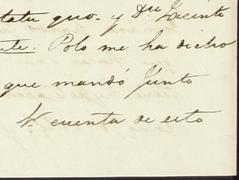 statu quo. y Dn Jacinto
te. Polo me ha dicho
que mandó Junto
cuenta de esto